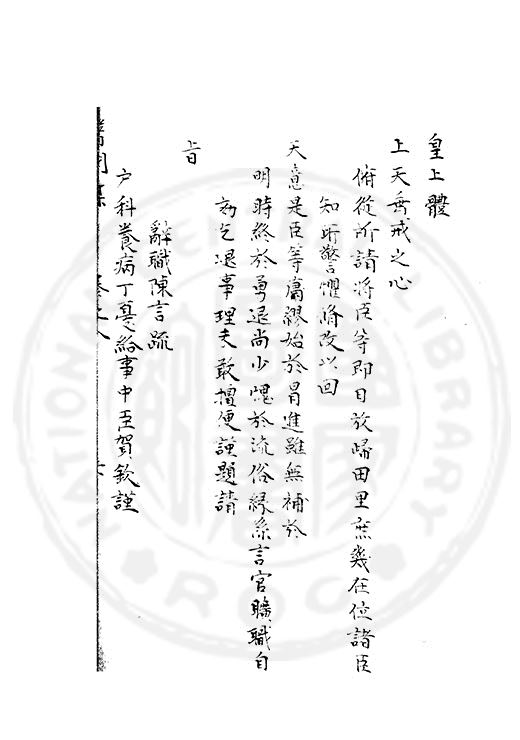 皇上體
上天垂戒之心
俯從所請將臣等即日放歸田里庶幾在位諸臣
知所警懼脩改以回
天意是臣等庸繆始於冒進雖無補於
明時終於勇退尚少愧於流俗緣係言官曠職自
劾乞退事理未敢擅便謹題請
旨
辭職陳言疏
戶科養病丁憂給事中臣賀欽謹
醫閭集
卷之八